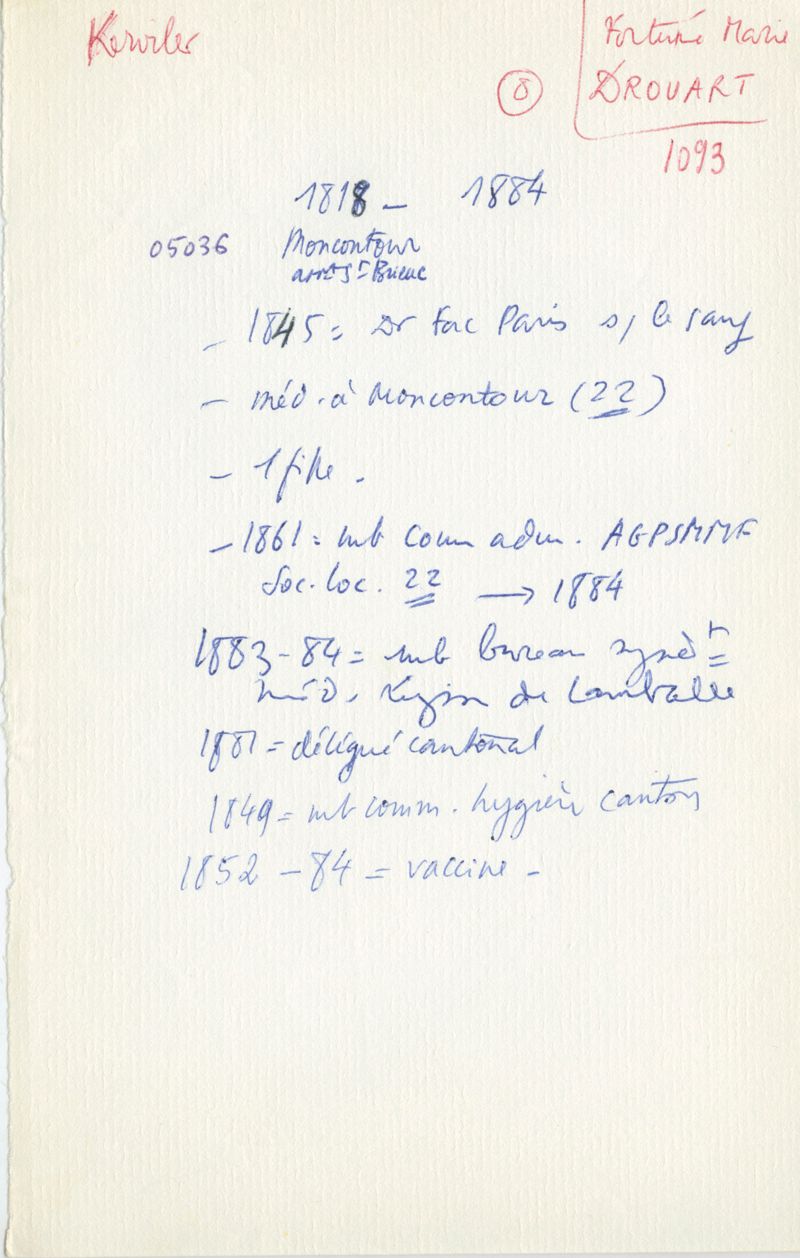 Kerviler
Fortuné Marie
DROUART
8
1093
1818 - 1884
05036 Moncontour
arrt St Brieuc
- 1845 = Dr Fac Paris s/ le sang
- méd. à Moncontour (22)
- 1 fille.
- 1861 = mb Comm adm. AGPSMMF
Soc. loc. 22 → 1884
1883-84 = mb bureau syndt =
méd. Région de Lamballe
1881 = délégué cantonal
1849 = mb comm. hygiène canton
1852 - 84 = vaccine -